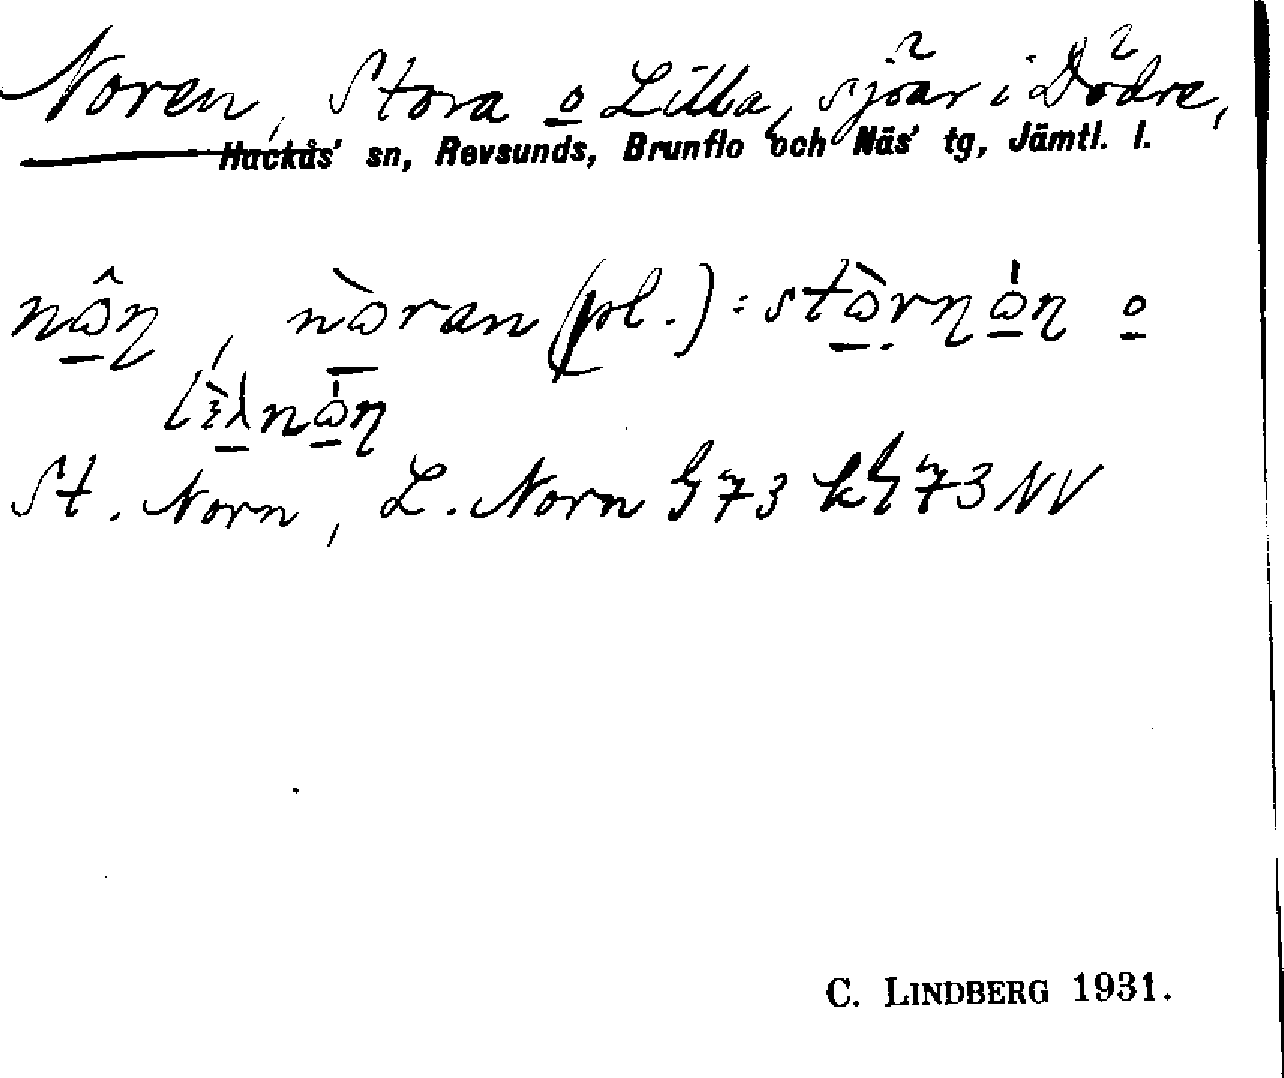 Noren, Stora o Lilla, sjöar i Dödre,
Hackås' sn, Revsunds, Brunflo och Näs' tg, Jämtl. l.
nɷ̂η, nɷ̀ran (pl.) : stɷ̀rηɷ̍η o
nɷ̍η
St. Norn, L. Norn § 73 k§ 73 NV
C. LINDBERG 1931.